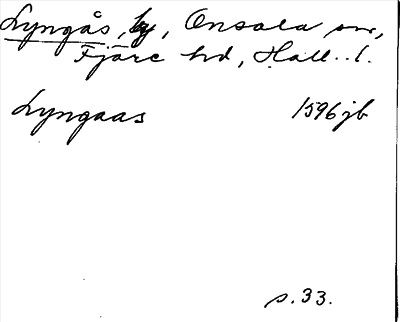 Lyngås, by, Onsala sn,
Fjäre hd, Hall. l.
Lyngaas 1596 jb
s. 33.